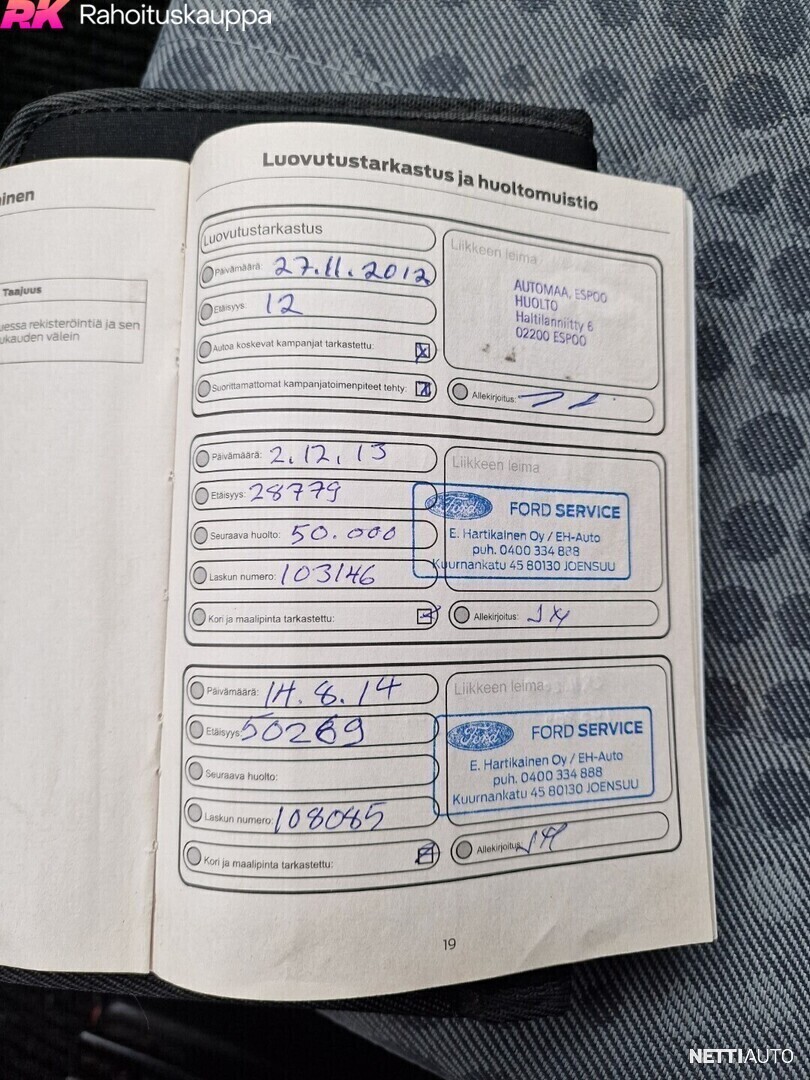 RK Rahoituskauppa
Luovutustarkastus ja huoltomuistio
inen
Taajuus
uessa rekisteröintiä ja sen
ukauden välein
Luovutustarkastus
Päivämäärä: 27.11.2012
Etäisyys: 12
Autoa koskevat kampanjat tarkastettu: X
Suorittamattomat kampanjatoimenpiteet tehty: X
Liikkeen leima
AUTOMAA, ESPOO
HUOLTO
Haltilanniitty 6
02200 ESPOO
Allekirjoitus:
Päivämäärä: 2.12.13
Etäisyys: 28779
Seuraava huolto: 50.000
Laskun numero: 103146
Kori ja maalipinta tarkastettu:
Liikkeen leima
Ford FORD SERVICE
E. Hartikainen Oy / EH-Auto
puh. 0400 334 888
Kuurnankatu 45 80130 JOENSUU
Allekirjoitus:
Päivämäärä: 14.8.14
Etäisyys: 50269
Seuraava huolto:
Laskun numero: 108085
Kori ja maalipinta tarkastettu:
Liikkeen leima
Ford FORD SERVICE
E. Hartikainen Oy / EH-Auto
puh. 0400 334 888
Kuurnankatu 45 80130 JOENSUU
Allekirjoitus:
19
NETTIAUTO